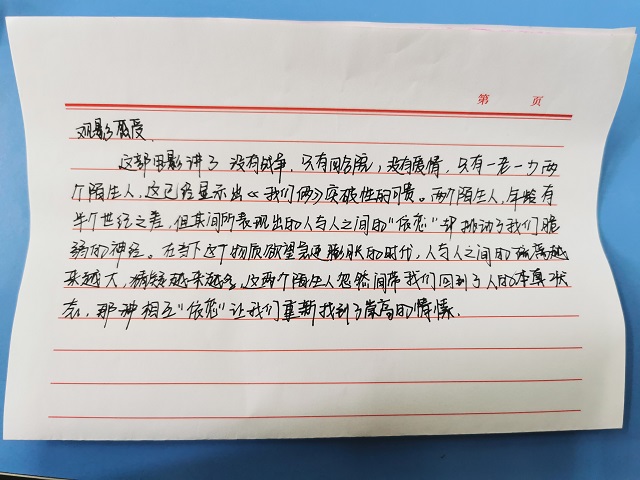 第 页
观影感受
这部电影讲了没有战争，只有四合院，没有爱情，只有一老一少两
个陌生人，这已经显示出《我们俩》突破性的可贵。两个陌生人，年龄有
半个世纪之差，但其间所表现出的人与人之间的“依恋”却挑动了我们脆
弱的神经。在当下这个物质欲望急速膨胀的时代，人与人之间的隔离越
来越大，猜疑越来越多，这两个陌生人忽然间带我们回到了人的本真状
态，那种相互“依恋”让我们重新找到了崇高的情愫.